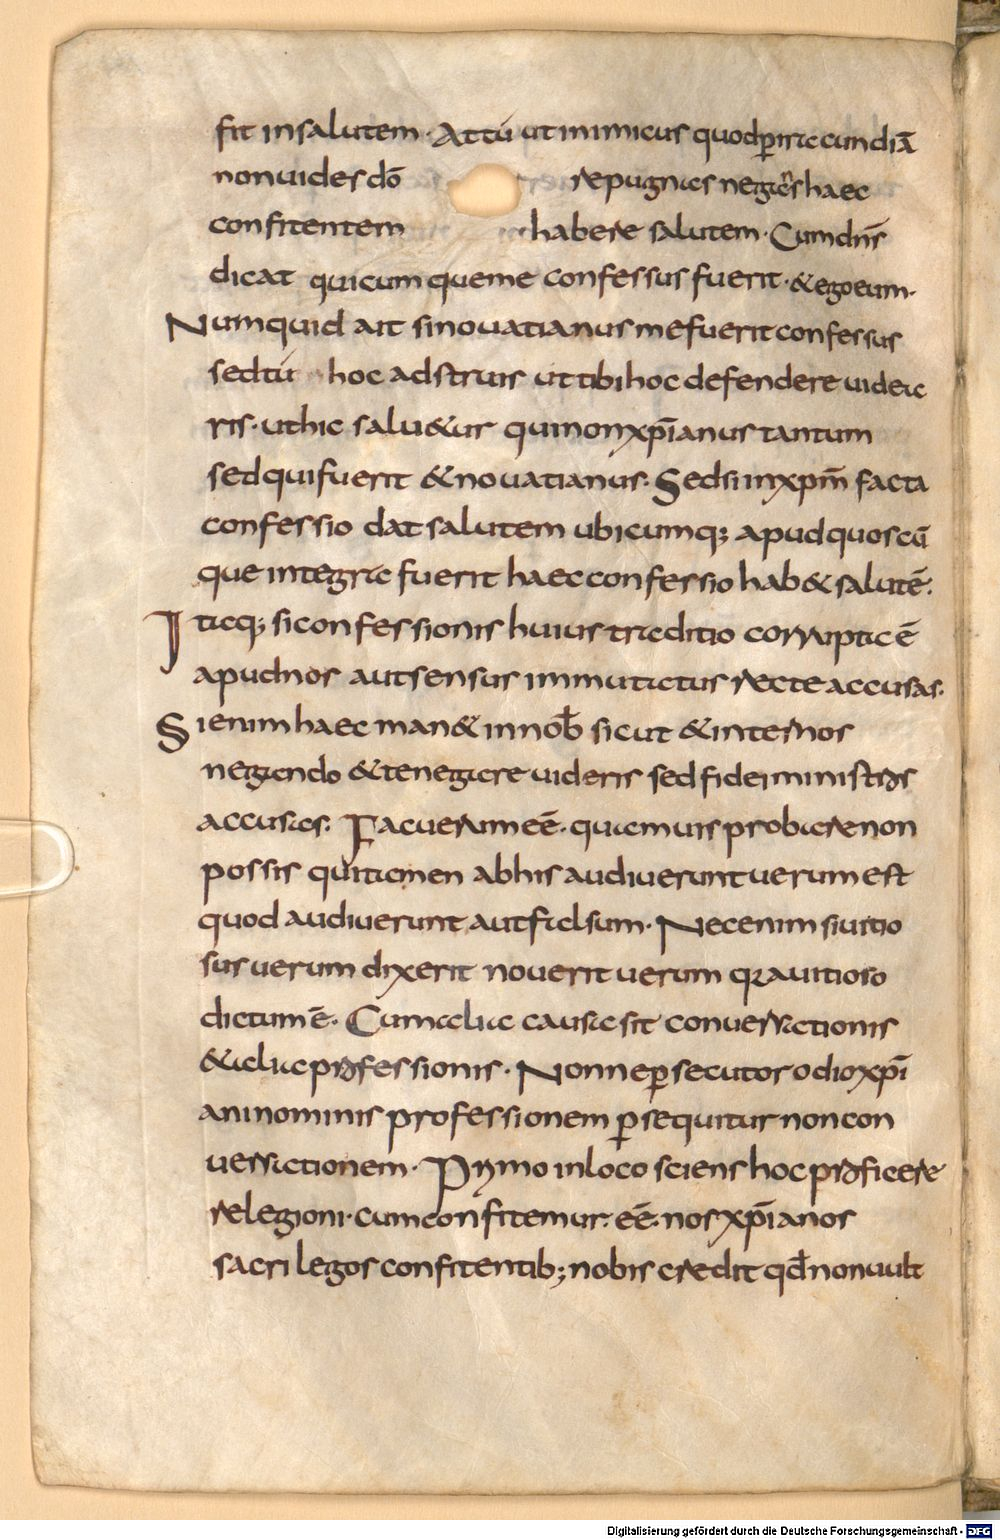 fit insalutem· Attú ut inimicus quodꝑiracundiā
nonuides dō repugnas negans haec
confitentem habere salutem· Cumdn̄s
dicat quicumqueme confessus fuerit· &egoeum·
Numquid ait sinouatianusmefuerit confessus
sedtú hoc adstruis ut tibihoc defendere uidea
ris· uthic salu&ur quinonxp̄ianus tantum
sedquifuerit &nouatianus· Sedsi inxpm̄ facta
confessio dat salutem ubicumq; apudquoscū
que integra fuerit haecconfessio hab&salutē·
Itaq; siconfessionis huius traditio corrupta ē
apudnos aut sensus immutatus recte accusas·
Sienim haec man& innob̄ sicut &internos
negando &tenegare uideris sed fidei ministros
accusas· Facuerumeē· quamuis probarenon
possis quitamen abhis audiuerunt uerum est
quod audiuerunt aut falsum· Necenim siuitio
sus uerum dixerit nouerit uerum qꝛauitioso
dictum ē· Cumalia causa sit conuersationis
&alia professionis· Nonneꝑsecutor odioxp̄i
aninominis professionem ꝑsequitur noncon
uersationem· Primo inloco sciens hoc proficere
relegioni· cumconfitemur· eē· nos xp̄ianos
sacrilegos confitentib; nobis credit qd̄ nonuult
Digitalisierung gefördert durch die Deutsche Forschungsgemeinschaft - DFG